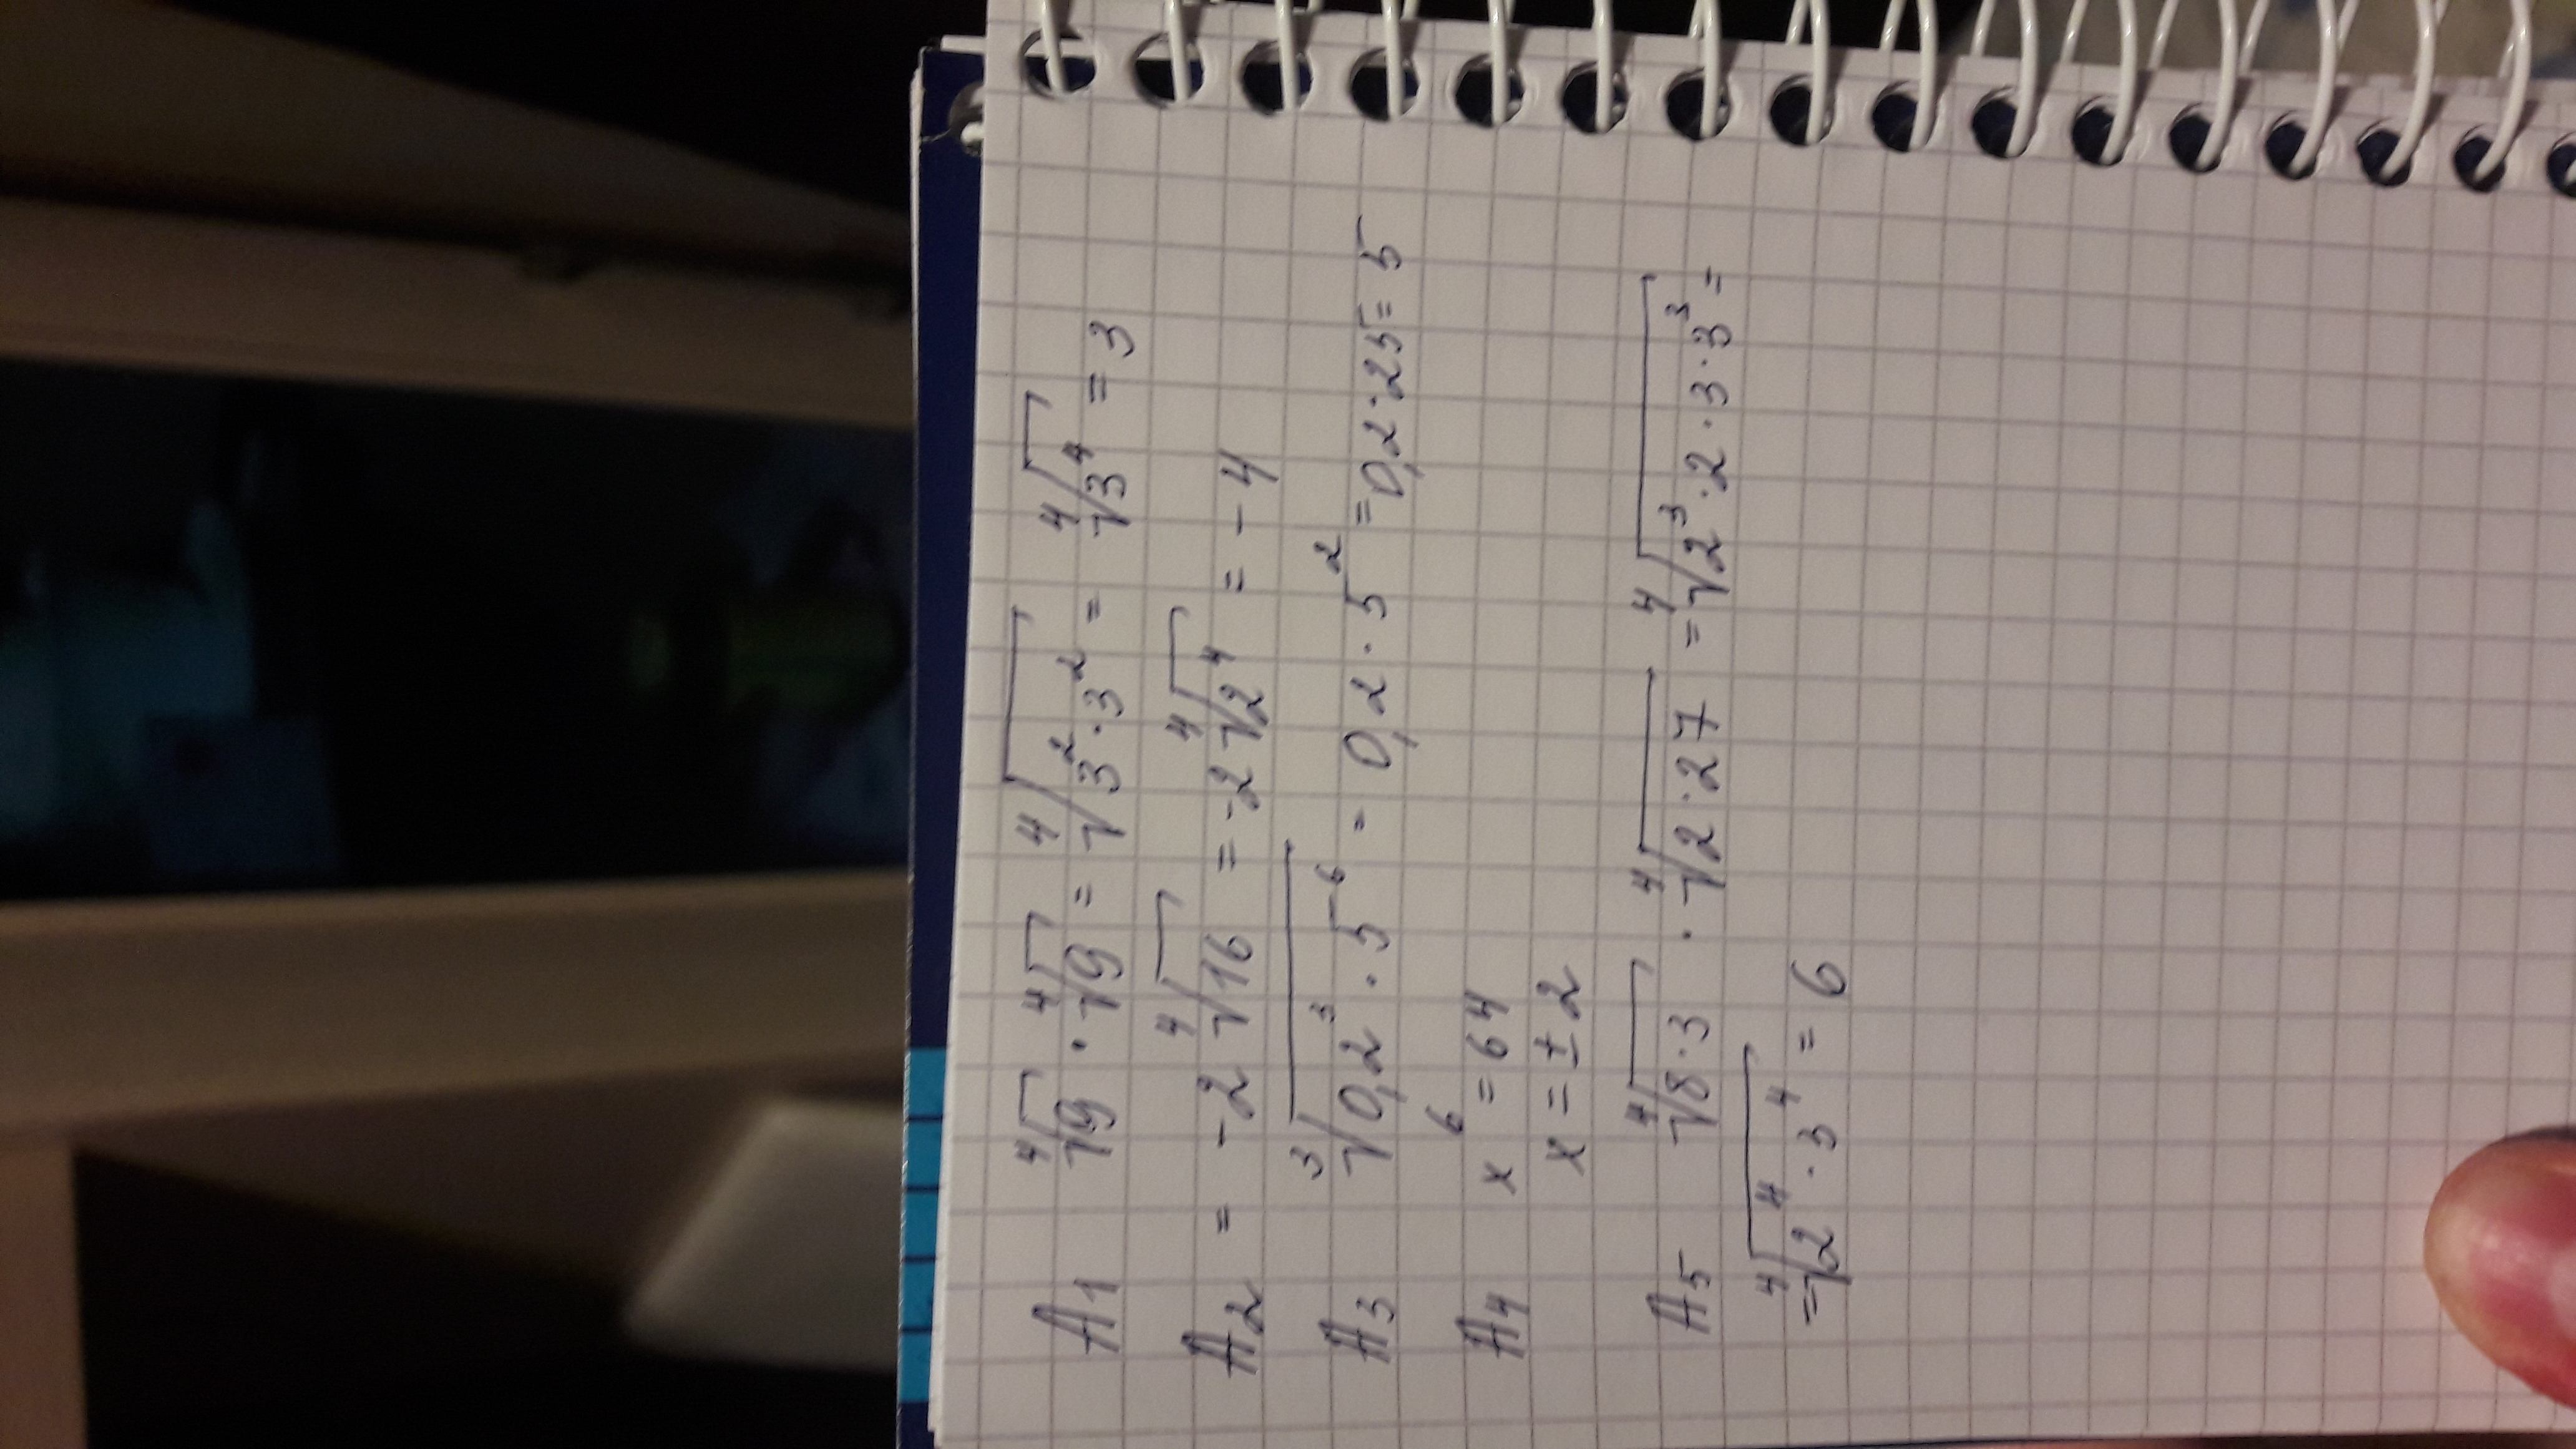 A1 ⁴√9 · ⁴√9 = ⁴√3² · 3² = ⁴√3⁴ = 3
A2 = -2 ⁴√16 = -2 ⁴√2⁴ = -4
A3 ³√0,2³ · 5⁶ = 0,2 · 5² = 0,2 · 25 = 5
A4 x⁶ = 64
x = ± 2
A5 ⁴√8·3 · ⁴√2·27 = ⁴√2³ · 2 · 3 · 3³ =
= ⁴√2⁴ · 3⁴ = 6